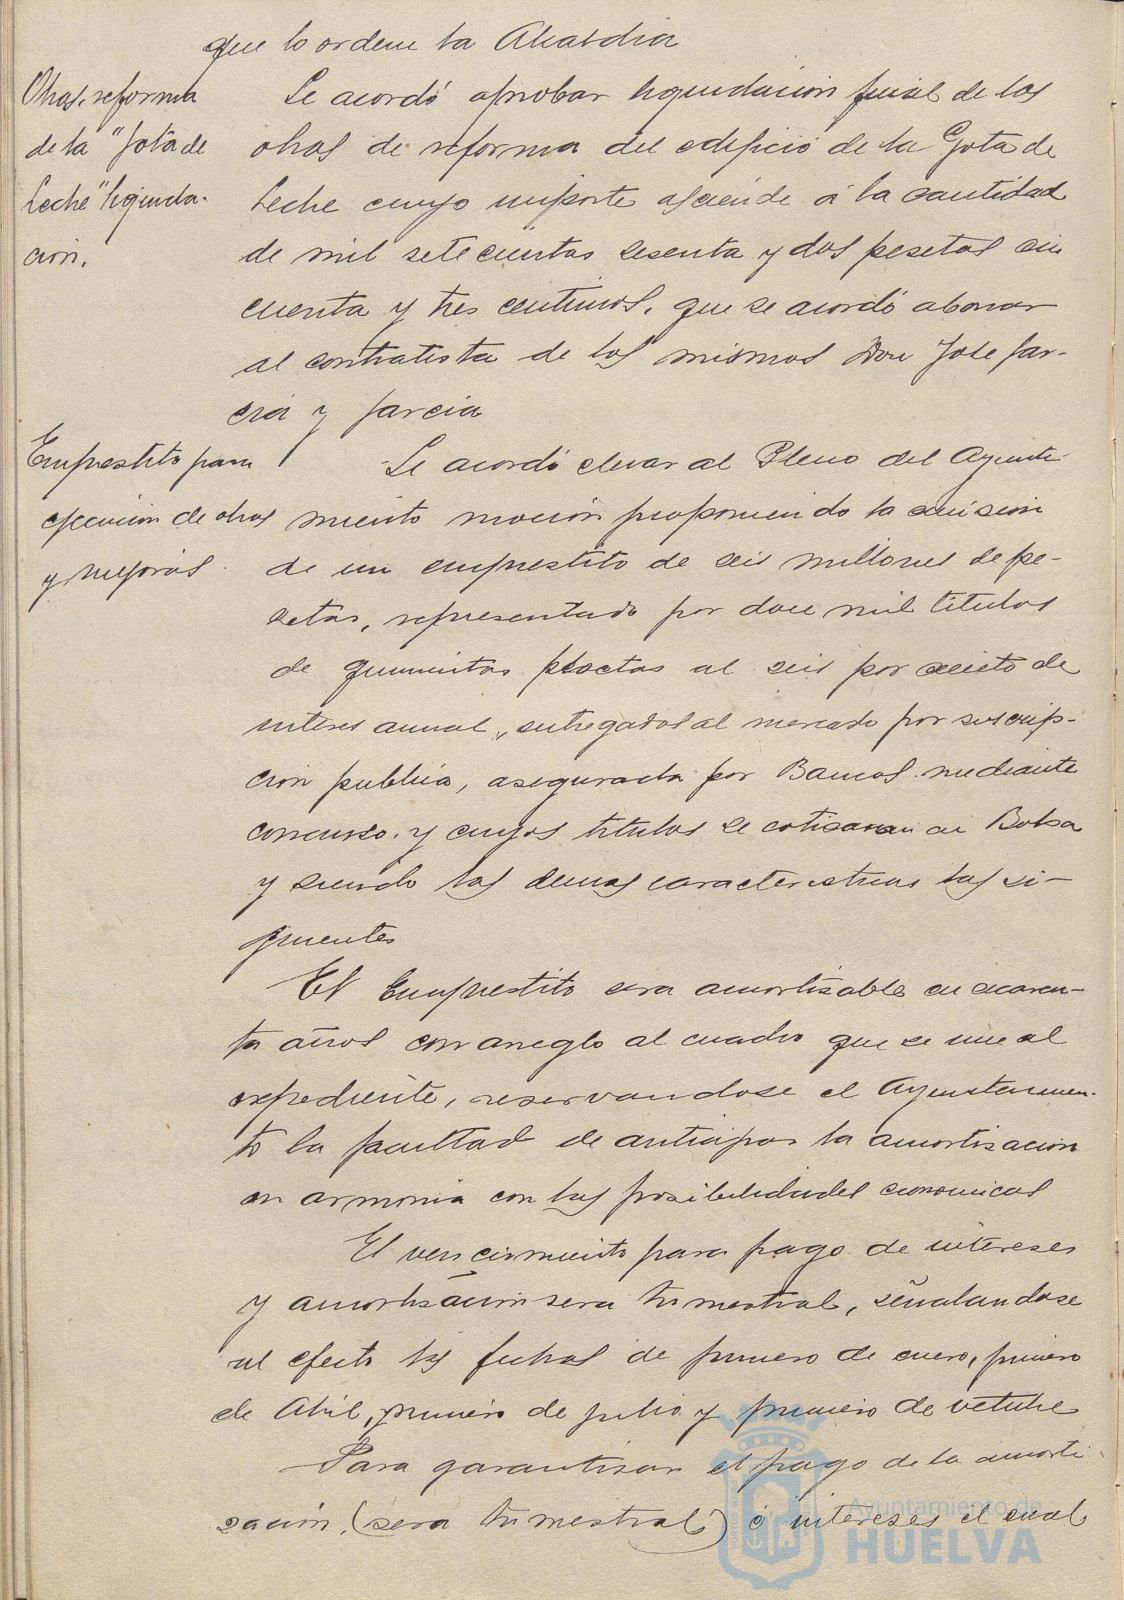 que lo ordene la Alcaldia
Obras reforma
de la "Gota de
Leche" liquida-
ción.
Se acordó aprobar liquidacion final de las
obras de reforma del edificio de la Gota de
Leche cuyo importe asciende á la cantidad
de mil setecientas sesenta y dos pesetas cin
cuenta y tres centimos, que se acordó abonar
al contratista de las mismas Don Jose Gar-
cia y Garcia
Emprestito para
ejecucion de obras
y mejoras.
Se acordó elevar al Pleno del Ayunta-
miento mocion proponiendo la emision
de un emprestito de seis millones de pe-
setas, representado por doce mil titulos
de quinientas pesetas al seis por ciento de
interes annual, entregados al mercado por suscrip-
cion publica, asegurada por Bancos mediante
concurso y cuyos titulos se cotizaran en Bolsa
y siendo las demas caracteristicas las si-
guientes
El Emprestito sera amortizable en cuaren-
ta años con arreglo al cuadro que se une al
expediente, reservandose el Ayuntamien-
to la facultad de anticipar la amortizacion
en armonia con las posibilidades economicas
El vencimiento para pago de intereses
y amortisacion sera trimestral, señalandose
al efecto las fechas de primero de enero, primero
de Abril, primero de julio y primero de octubre
Para garantizar el pago de la amorti
zación, (sera trimestral) é intereses el cual
Ayuntamiento de
HUELVA